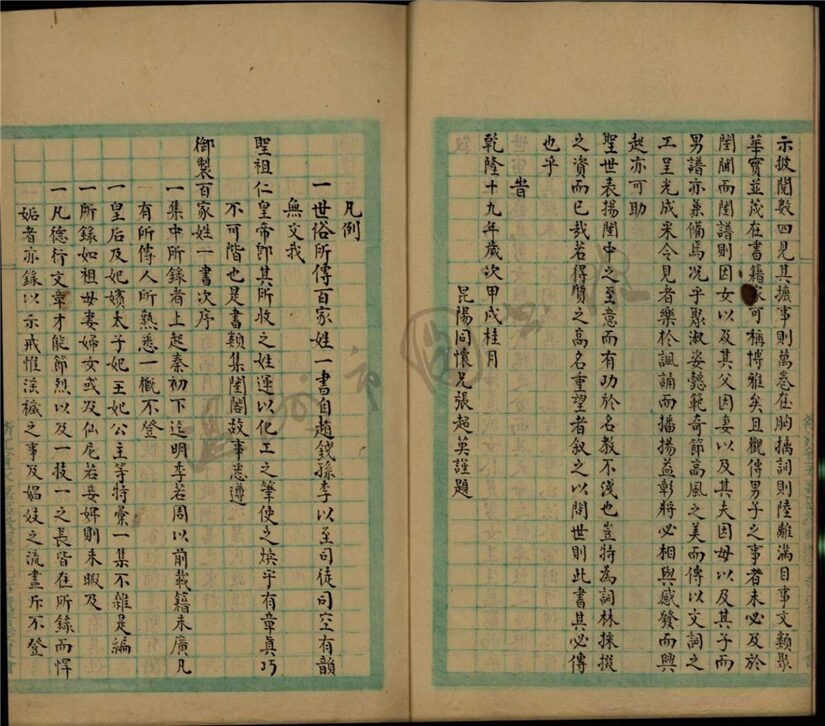 示披閱數四見其摭事則萬卷在胸摛詞則陸離滿目事文類聚
華實並茂在書籍家可稱博雅矣且觀傳男子之事者未必及於
閨閫而閨譜則因女以及其父因妻以及其夫因母以及其子而
男譜亦兼備焉况乎聚淑姿懿範奇節高風之美而傳以文詞之
工呈光成采令見者樂於諷誦而播揚益彰將必相與感發而興
起亦可助
聖世表揚閨中之至意而有功於名教不淺也豈特為詞林採掇
之資而已哉若得質之高名重望者叙之以問世則此書其必傳
也乎
旹
乾隆十九年歲次甲戌桂月
昆陽同懷兄張超英謹題
凡例
一世俗所傳百家姓一書自趙錢孫李以至司徒司空有韻
無文我
聖祖仁皇帝即其所收之姓運以化工之筆使之煥乎有章真巧
不可階也是書類集閨閣故事悉遵
御製百家姓一書次序
一集中所錄者上起秦初下迄明季若周以前載籍未廣凡
有所傳人所熟悉一概不登
一皇后及妃嬪太子妃王妃公主等特彙一集不雜是編
一所錄如祖母妻婦女或及仙尼若妾婢則未暇及
一凡德行文章才能節烈以及一技一之長皆在所錄而悍
妬者亦錄以示戒惟淫穢之事及娼妓之流盡斥不登